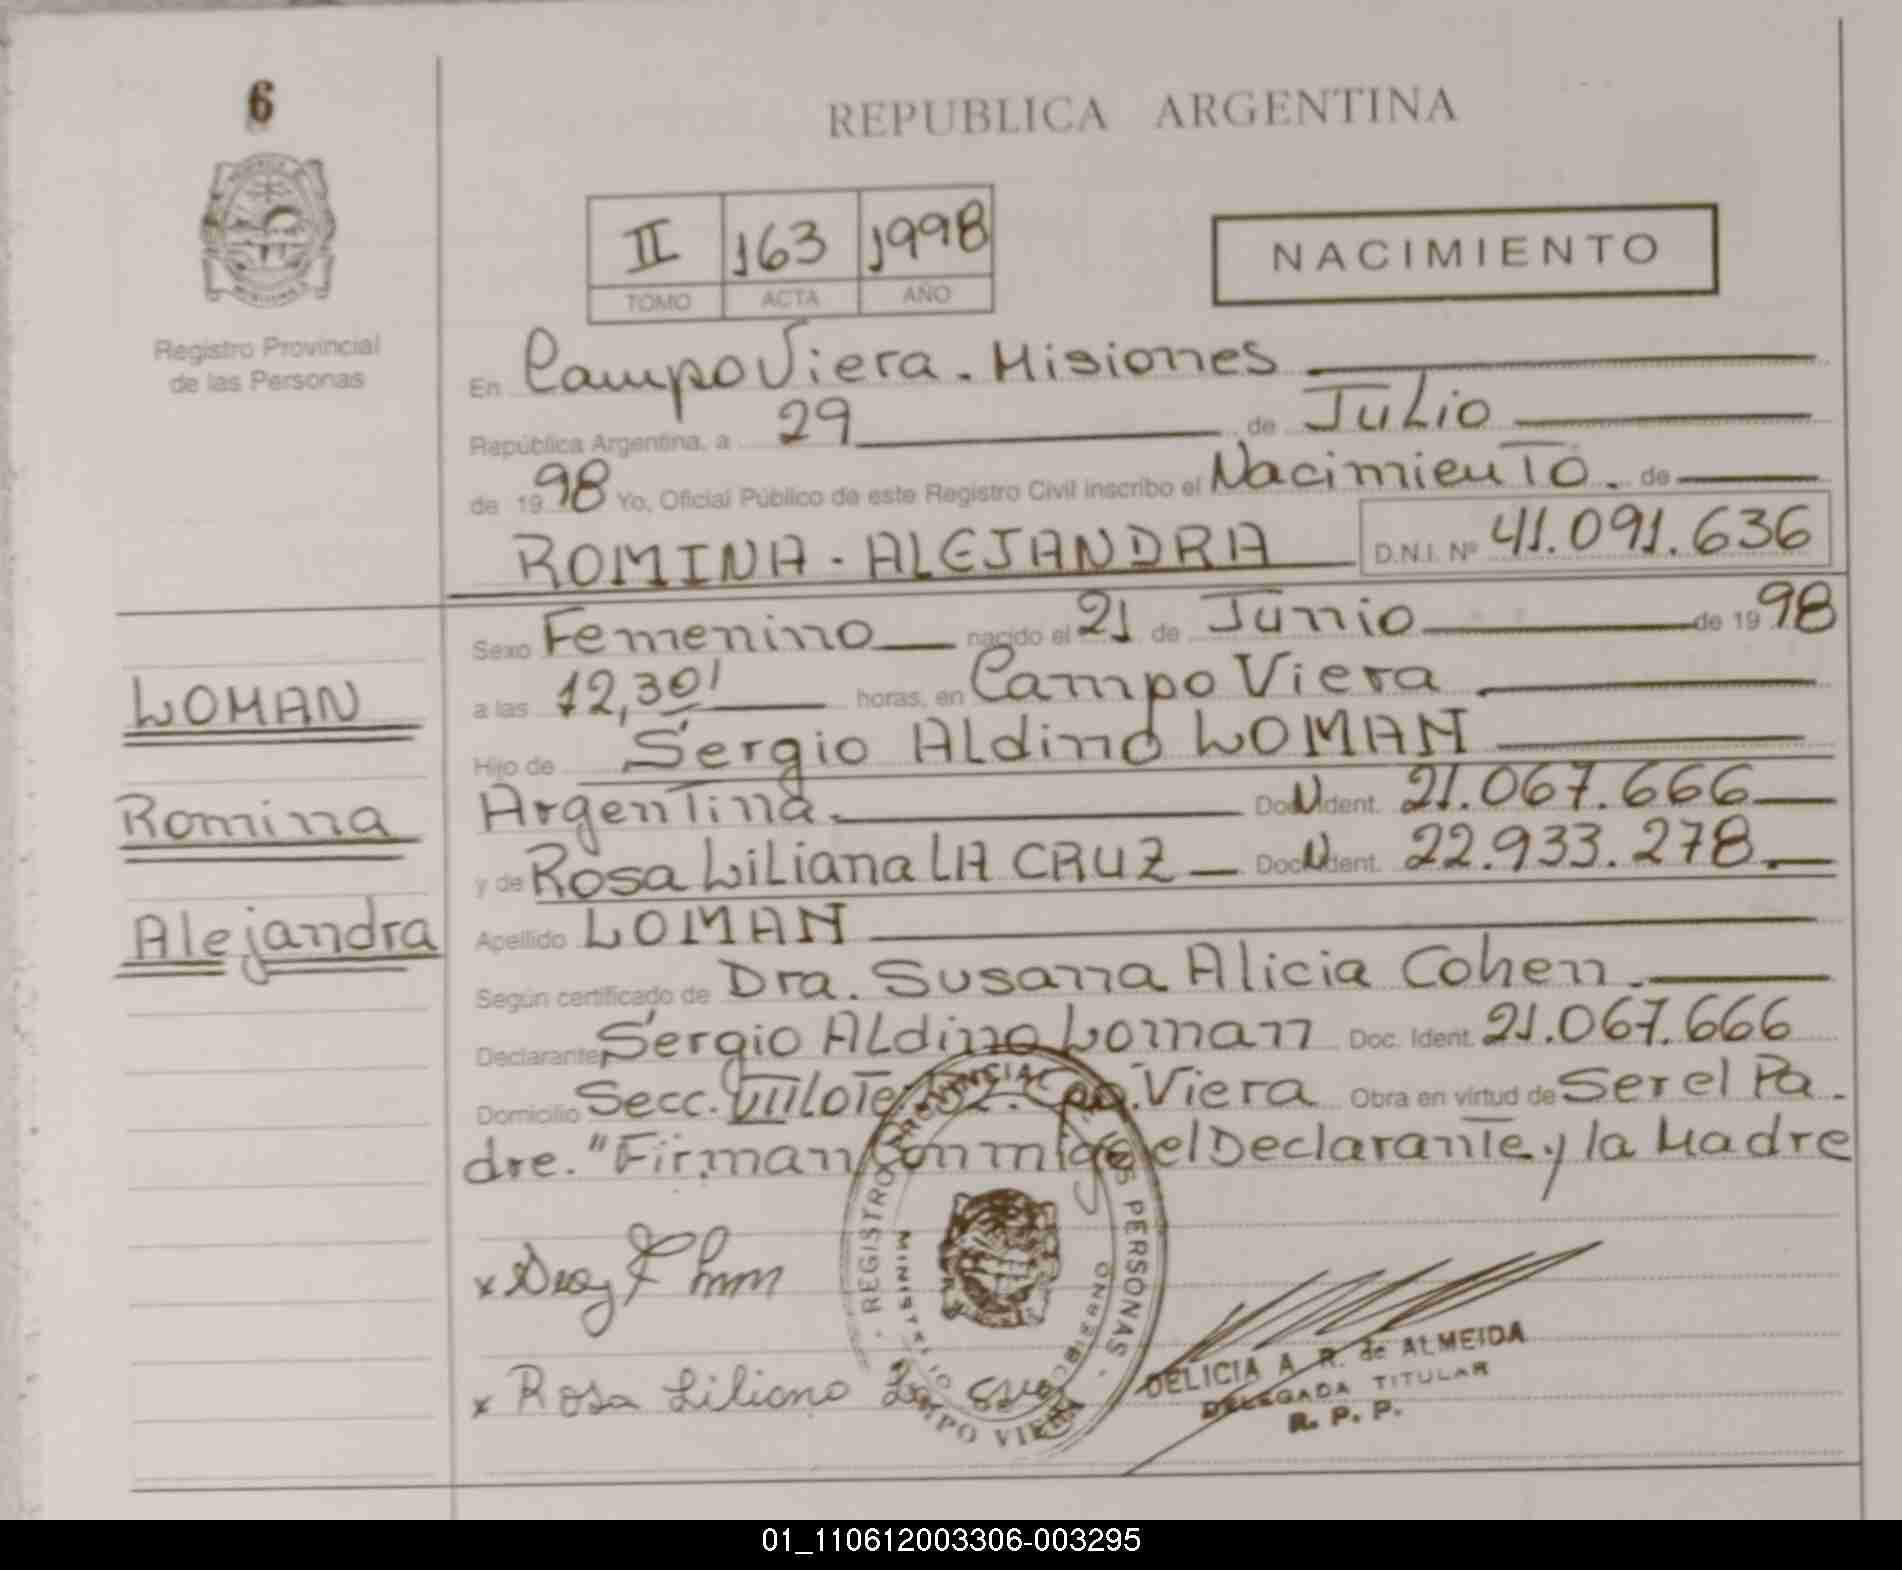 6
REPUBLICA ARGENTINA
II 163 1998
TOMO ACTA AÑO
NACIMIENTO
Registro Provincial
de las Personas
En Campo Viera. Misiones
República Argentina, a 29 de Julio
de 1998 Yo, Oficial Público de este Registro Civil inscribo el Nacimiento. de
ROMINA - ALEJANDRA D.N.I. Nº 41.091.636
Sexo Femenino nacido el 21 de Junio de 1998
a las 12,30' horas, en Campo Viera
Hijo de Sergio Aldino LOMAN
Argentina. Doc. Ident. 21.067.666
y de Rosa Liliana LA CRUZ Doc. Ident. 22.933.278.
Apellido LOMAN
Según certificado de Dra. Susana Alicia Cohen.
Declarante Sergio Aldino Loman Doc. Ident. 21.067.666
Domicilio Secc. VII Lote Cpo. Viera Obra en virtud de Ser el Pa.
dre. "Firman Conmigo el Declarante y la Madre
LOMAN
Romina
Alejandra
x
x Rosa Liliana La Cruz
REGISTRO PROVINCIAL DE LAS PERSONAS
MINISTERIO DE GOBIERNO
CAMPO VIERA
DELICIA A R. de ALMEIDA
DELEGADA TITULAR
R. P. P.
01_110612003306-003295